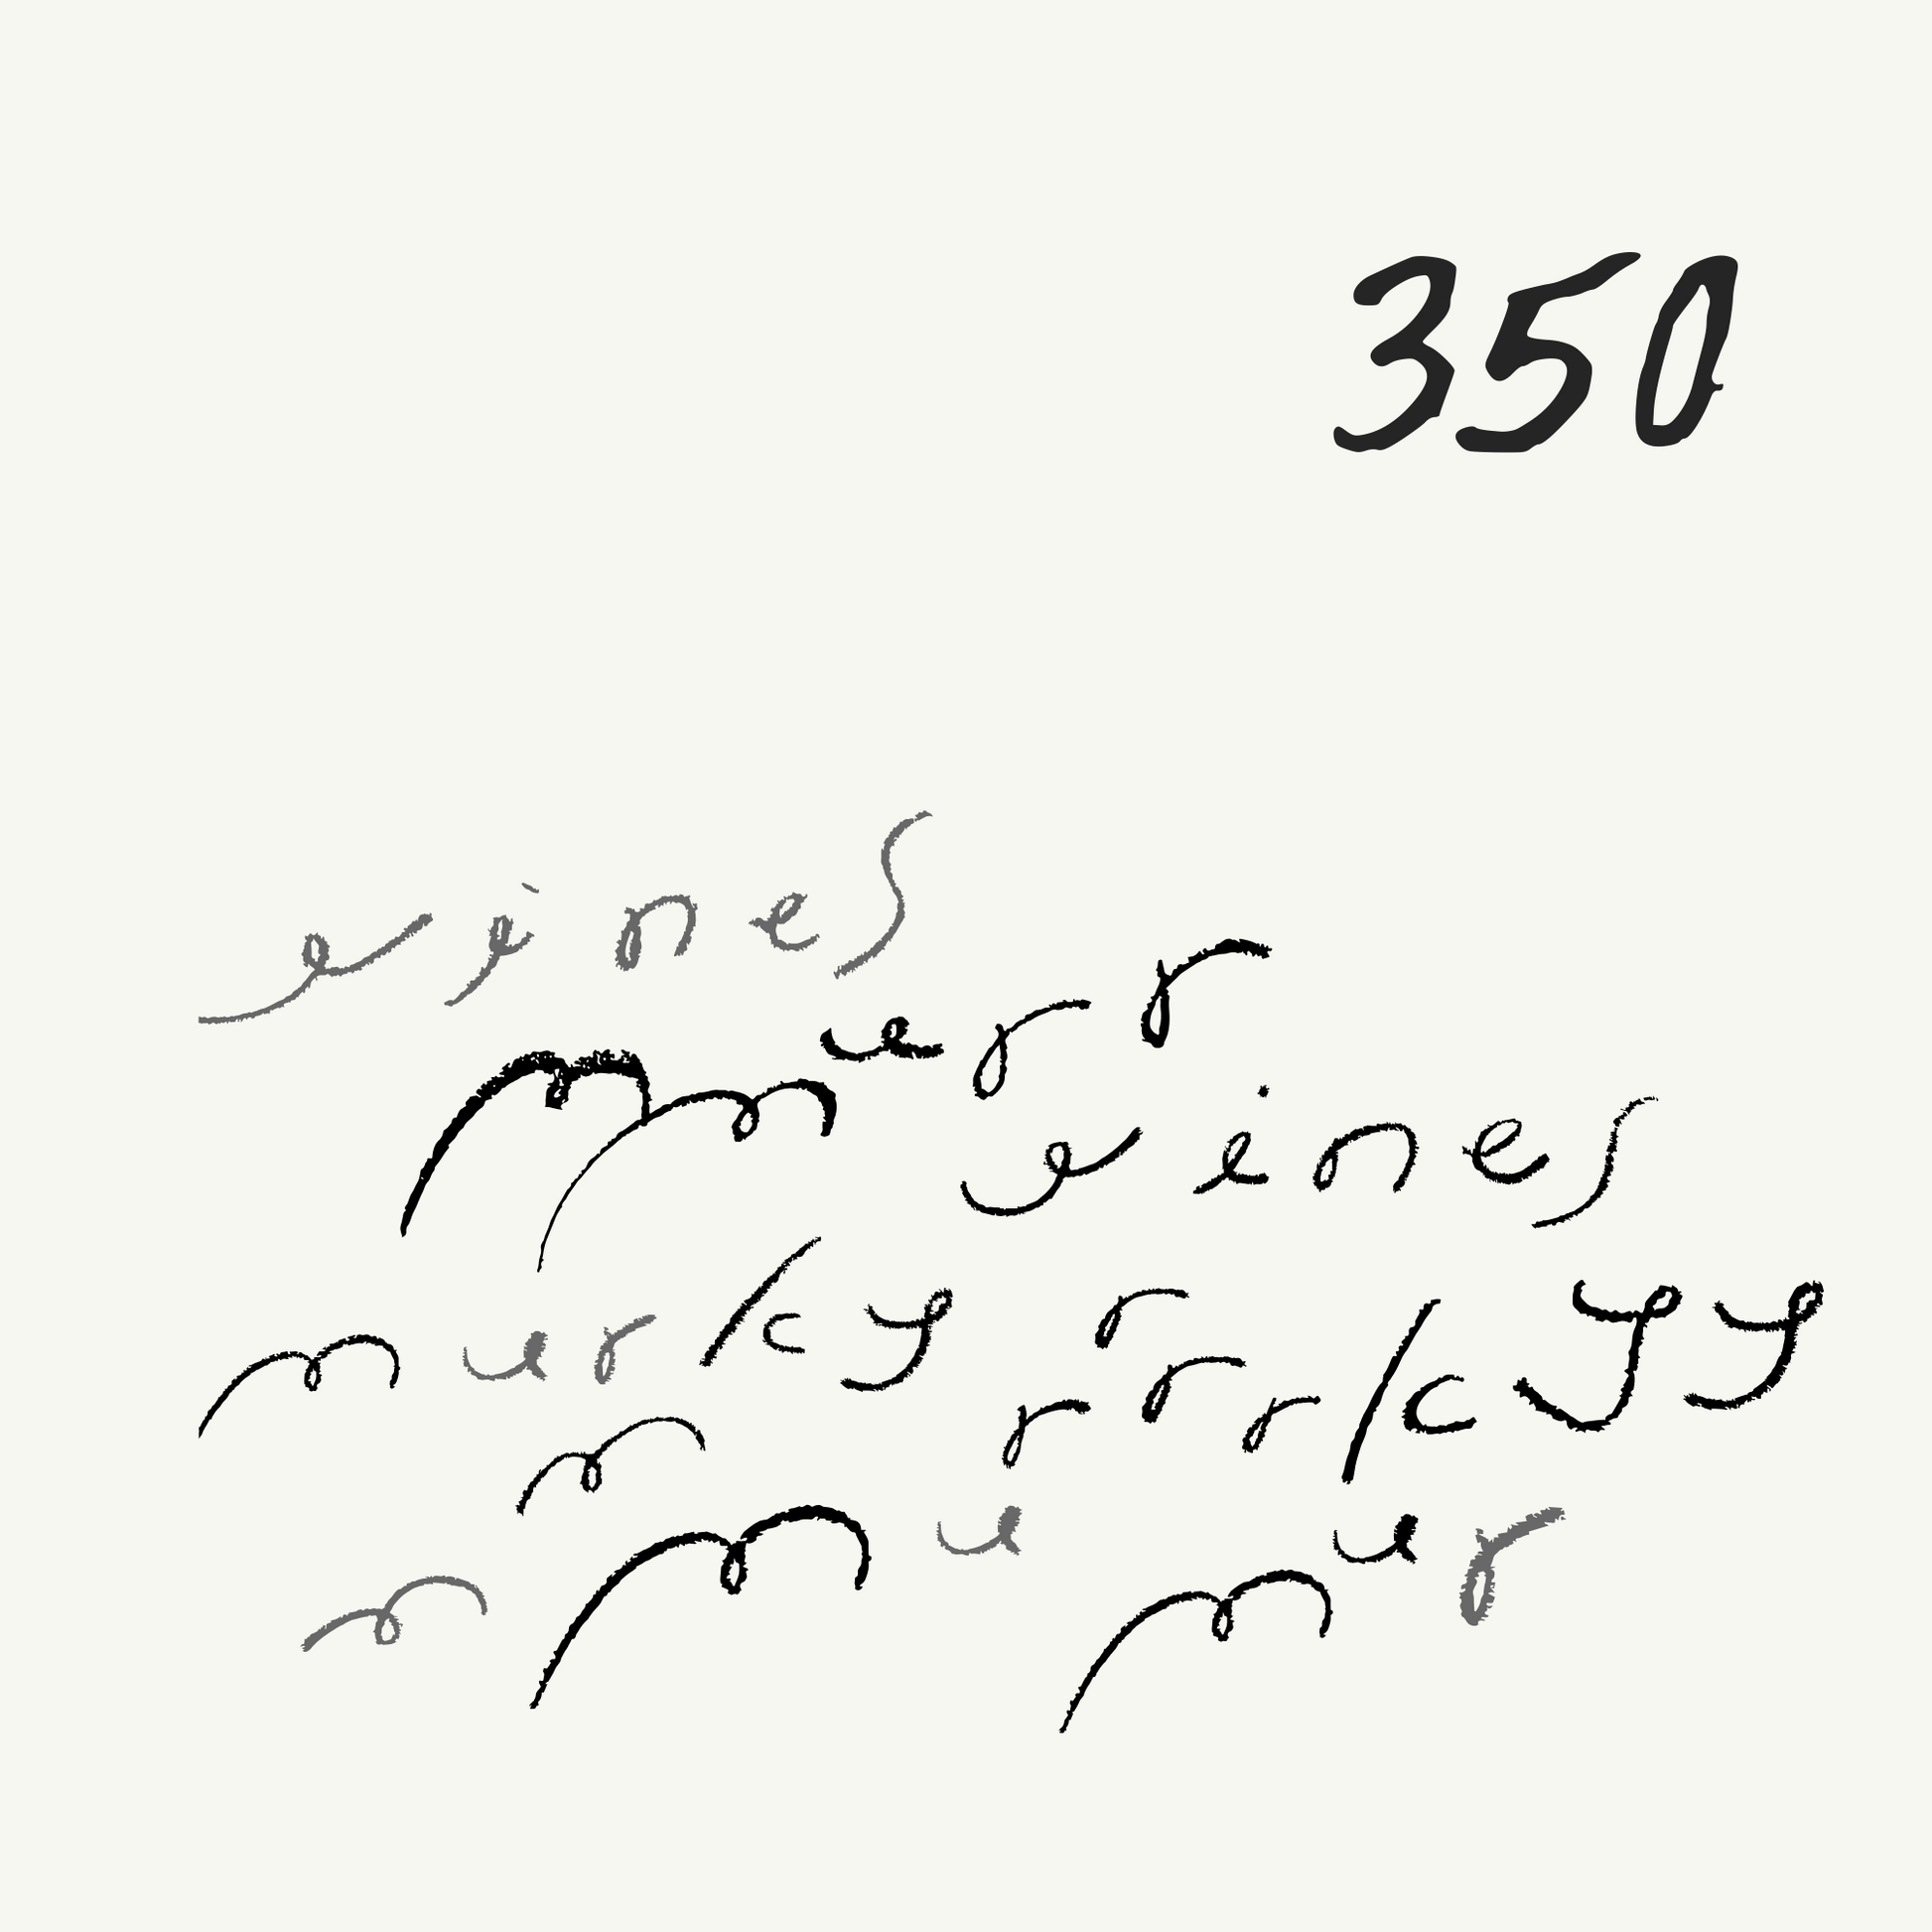 350
eines
murr
eines
murky rrrrkyy
m
m m u m u r